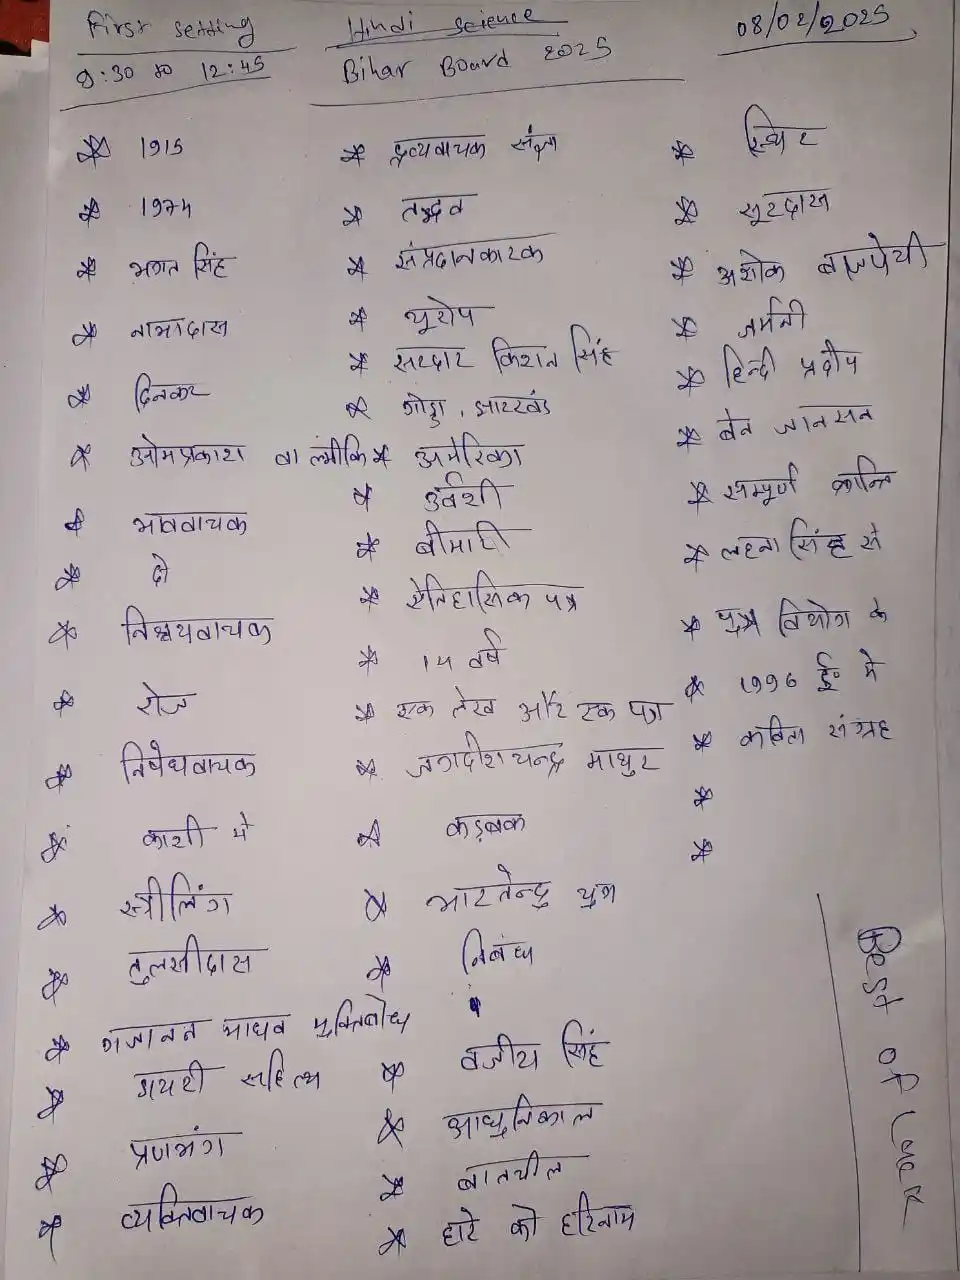 First setting
9:30 to 12:45
Hindi Science
Bihar Board 2025
08/02/2025
1915
1974
भगत सिंह
नाभादास
दिनकर
ओमप्रकाश वाल्मीकि
भाववाचक
दो
निश्चयवाचक
रोज
निषेधवाचक
काशी में
स्त्रीलिंग
तुलसीदास
गजानन माधव मुक्तिबोध
डायरी साहित्य
प्रणभंग
व्यक्तिवाचक
द्रव्यवाचक संज्ञा
तद्भव
संप्रदानकारक
यूरोप
सरदार किशन सिंह
गोड्डा, झारखंड
अमेरिका
उर्वशी
बीमारी
ऐतिहासिक पत्र
14 वर्ष
एक लेख और एक पत्र
जगदीशचन्द्र माथुर
कड़बक
भारतेन्दु युग
निबंध
वजीरा सिंह
आधुनिकाल
बातचीत
हारे को हरिनाम
स्थिर
सूरदास
अशोक वाजपेयी
जर्मनी
हिन्दी प्रदीप
बेन जानसन
सम्पूर्ण क्रान्ति
लहना सिंह से
पुत्र वियोग के
1996 ई० में
कविता संग्रह
Best of Luck